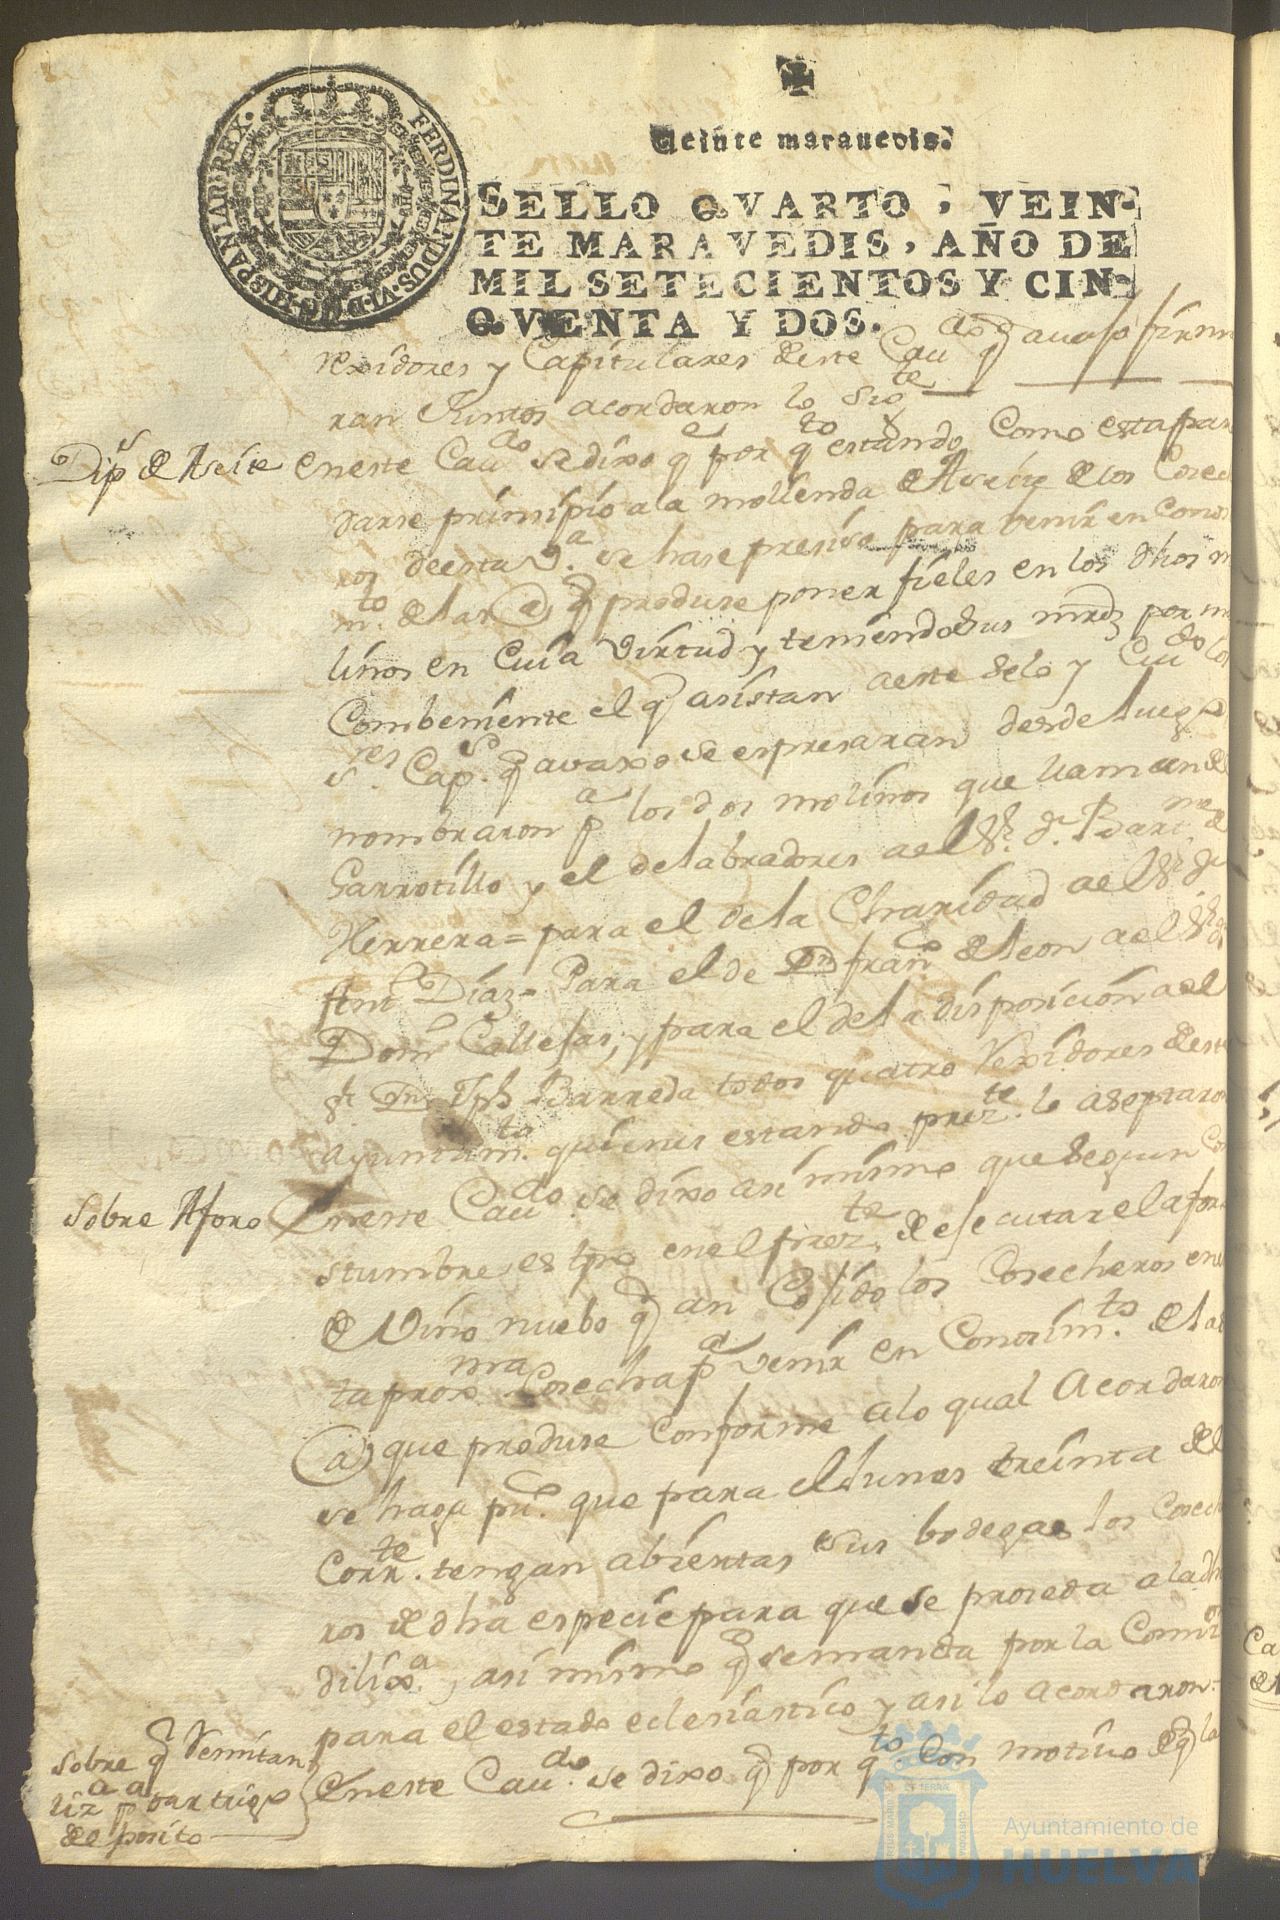 Veinte marauedis.
SELLO QVARTO, VEIN-
TE MARAVEDIS, AÑO DE
MIL SETECIENTOS Y CIN-
QVENTA Y DOS.
FERDINANDUS·VI·D·G·HISPANIAR·REX·
rexidores y Capitulares de este Caudo q avaxo firma
ran Juntos acordaron lo sigte
Dips de Aseite
en este Caudo se dixo q por qto estando Como esta para
darse prinsipio a la molienda de Aseite de los Coseche
ros de esta Va se hase presiso para venir en Conosi
mto de las @ q produse poner fieles en los dhos mo
linos en Cuia virtud y teniendo sus mrds por mui
Combeniente el q asistan a este selo y Cuido los
sres Caps q avaxo se espresaran desde luego
nombraron pa los dos molinos que llaman de
Garrotillo y el de labradores a el Sr Dn Barme de
Herrera = para el de la Charidad a el Sr Dn
Antо Diaz = Para el de Dn Franco de leon a el Sr Dn
Domo Callejas; y para el de la disposicion a el
Sr Dn Jph Barreda todos quatro Rexidores de este
Ayuntamto quienes estando preste lo aseptaron
Sobre Aforo
En este Caudo se dixo asi mismo que segun Co
stumbre es tpo en el preste de ejecutar el aforo
de Vino nuebo q an Cojido los Cosecheros en es
ta proxma Cosecha pa venir en Conosimto de las
@ que produse conforme a lo qual Acordaron
se haga puco que para el lunes treinta del
Corrte tengan abiertas sus bodegas los Coseche
ros de dha espesie para que se proseda a la dha
dilixa, asi mismo q se manda por la Comon
para el estado eclesiastico y asi lo acordaron =
Sobre q Remitan
liza pa dar trigo
de posito
En este Caudo se dixo q por qto Con motivo de q la
Ayuntamiento de
HUELVA